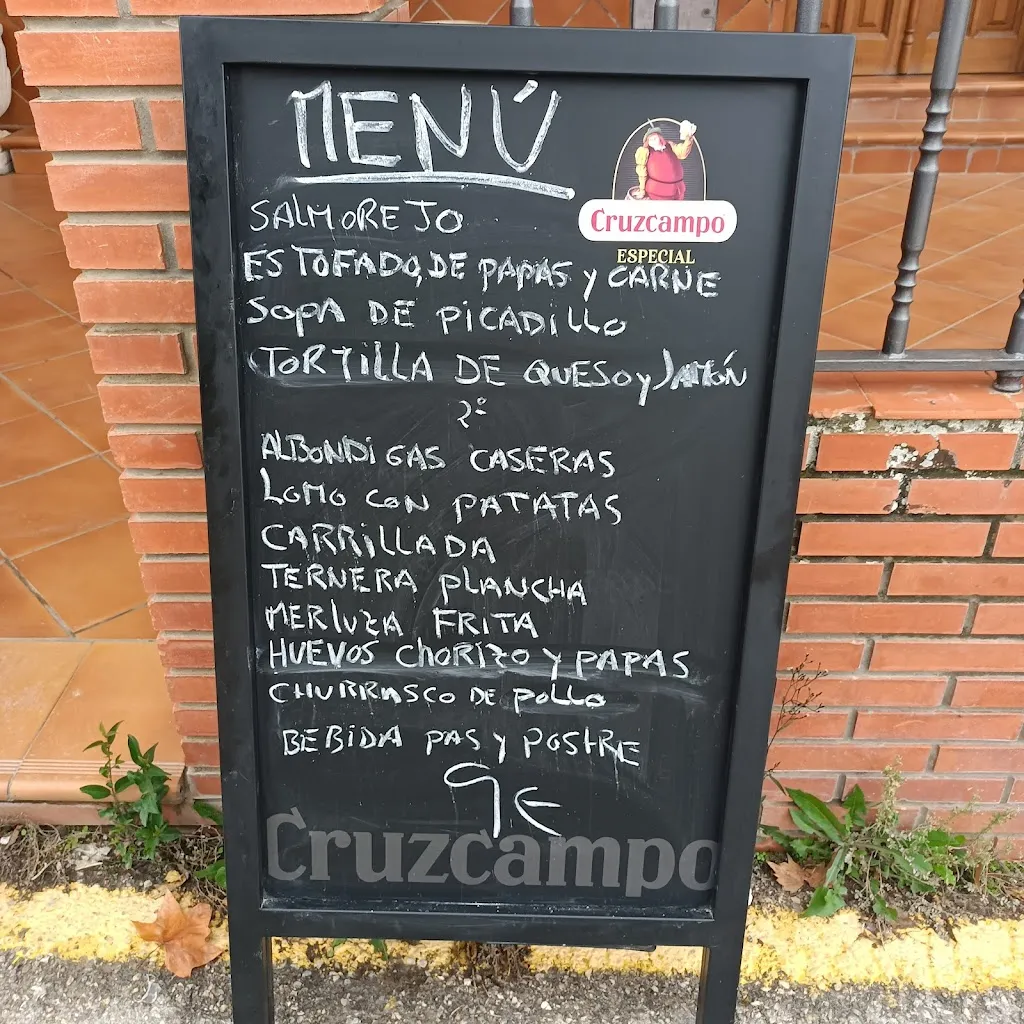 MENÚ
Cruzcampo
ESPECIAL
SALMOREJO
ESTOFADO DE PAPAS y CARNE
SOPA DE PICADILLO
TORTILLA DE QUESO y JAMÓN
2º
ALBONDIGAS CASERAS
LOMO CON PATATAS
CARRILLADA
TERNERA PLANCHA
MERLUZA FRITA
HUEVOS CHORIZO y PAPAS
CHURRASCO DE POLLO
BEBIDA PAS y POSTRE
9€
Cruzcampo